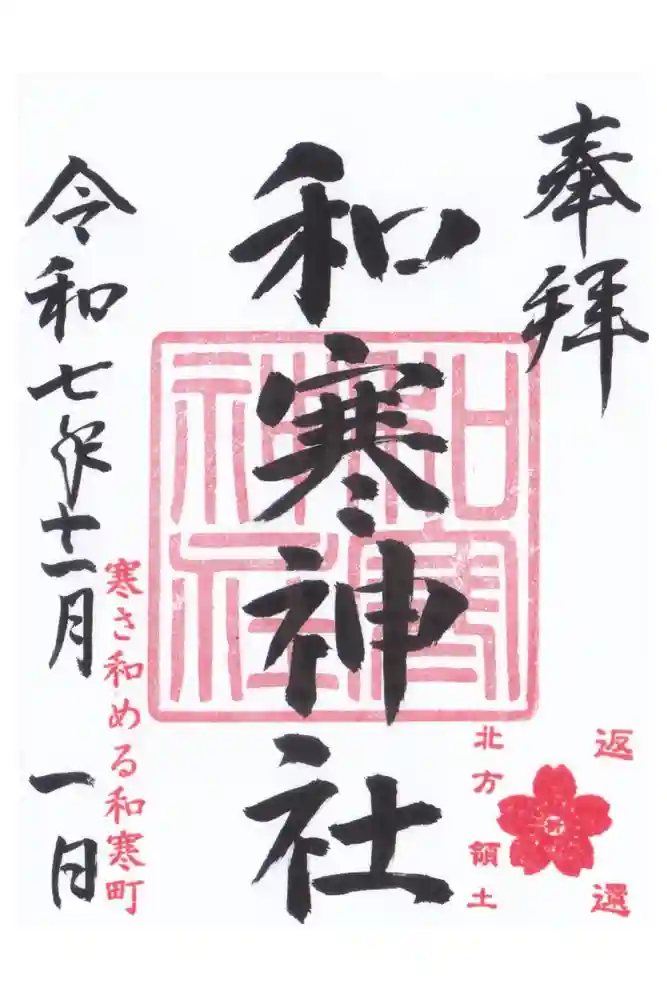 奉拝
和寒神社
和寒神社
令和七年十一月一日
寒さ和める和寒町
北方領土
返還